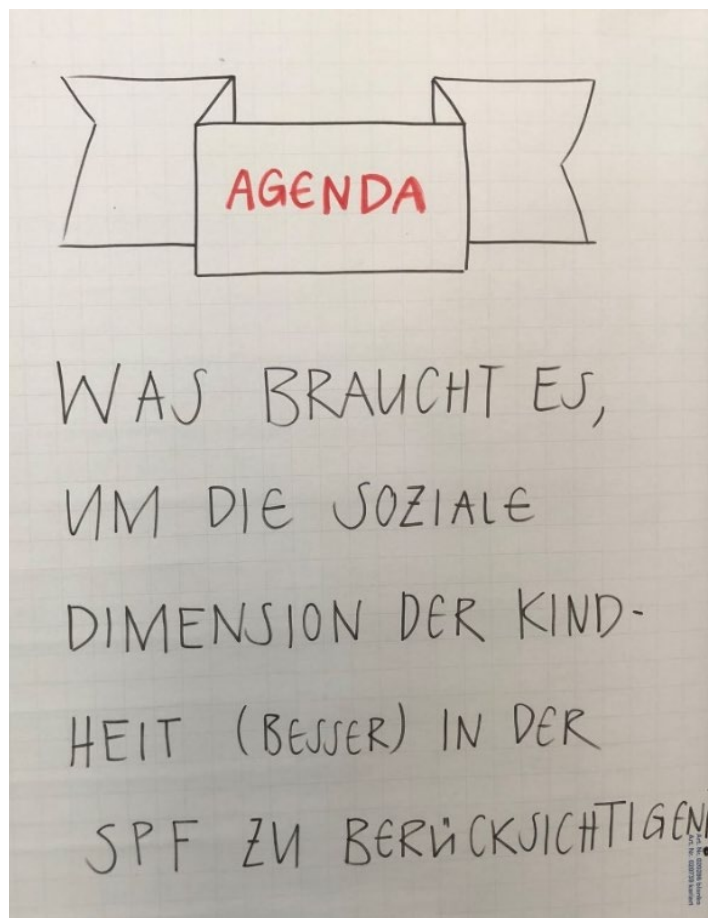 AGENDA
WAS BRAUCHT ES,
UM DIE SOZIALE
DIMENSION DER KIND-
HEIT (BESSER) IN DER
SPF ZU BERÜCKSICHTIGEN